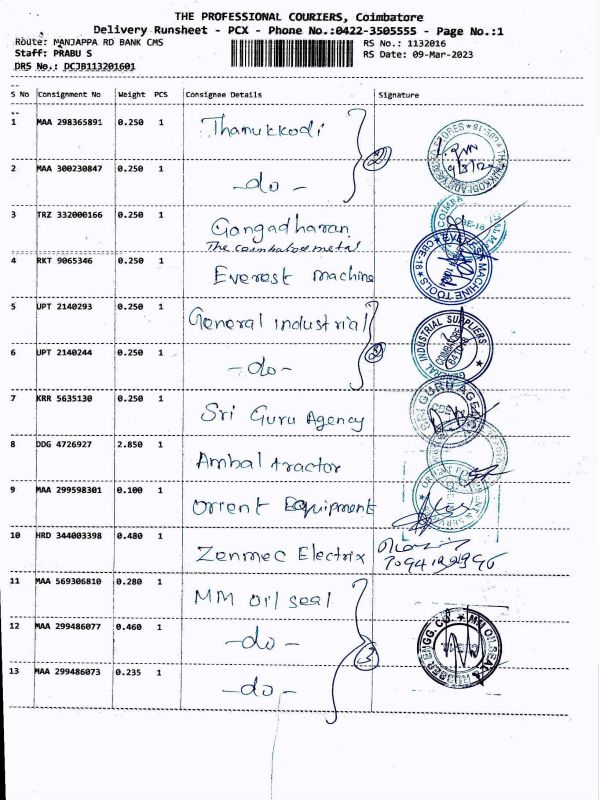 THE PROFESSIONAL COURIERS, Coimbatore
Delivery Runsheet - PCX - Phone No.:0422-3505555 - Page No.:1
Route: MANJAPPA RD BANK CMS
RS No.: 1132016
Staff: PRABU S
RS Date: 09-Mar-2023
DRS No.: DCJB113201601
S No Consignment No Weight PCS Consignee Details Signature
1 MAA 298365891 0.250 1 Thanukkodi
2 MAA 300230847 0.250 1 -do-
(2)
3 TRZ 332000166 0.250 1 Gangadharan
The coimbatore metal
4 RKT 9065346 0.250 1 Everest machine
EVEREST MACHINE TOOLS CBE-18
5 UPT 2140293 0.250 1 General industrial
6 UPT 2140244 0.250 1 -do-
(2)
GENERAL INDUSTRIAL SUPPLIERS
7 KRR 5635130 0.250 1 Sri Guru Agency
SRI GURU AGENCY
8 DDG 4726927 2.850 1 Ambal tractor
9 MAA 299598301 0.100 1 Orient Equipment
10 HRD 344003398 0.480 1 Zenmec Electrix
11 MAA 569306810 0.280 1 MM oil seal
12 MAA 299486077 0.460 1 -do-
(3)
13 MAA 299486073 0.235 1 -do-